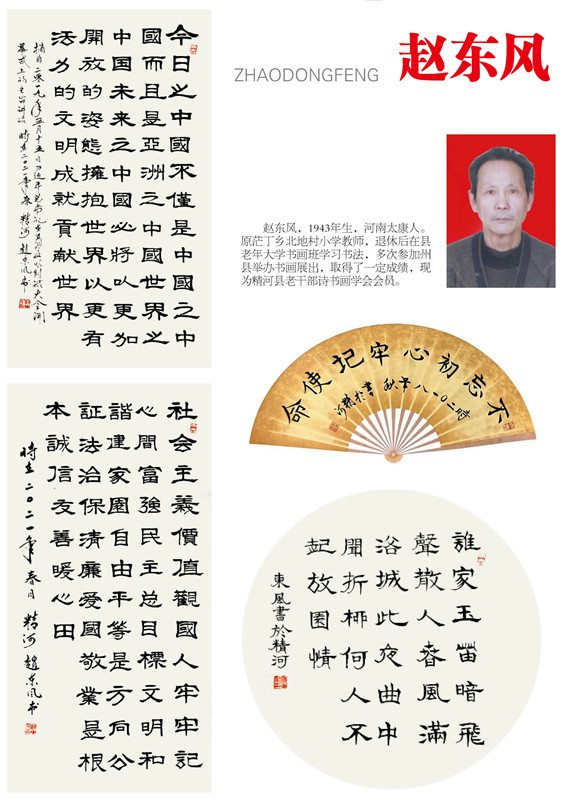 赵东风
ZHAODONGFENG
赵东风，1943年生，河南太康人。
原茫丁乡北地村小学教师，退休后在县
老年大学书画班学习书法，多次参加州
县举办书画展出，取得了一定成绩，现
为精河县老干部诗书画学会会员。
今日之中國不僅是中國之中
國而且是亞洲之中國世界之
中国未来之中國必將以更加
開放的姿態擁抱世界以更有
活力的文明成就貢献世界
摘自二零一九年五月十五日
時在二〇二一年春 精河 趙东风书
不忘初心牢記使命
時二〇一八年秋書於精河
社会主義價值觀國人牢牢記
心間富強民主总目標文明和
諧建家園自由平等是方向公
証法治保清廉爱國敬業是根
本誠信友善暖心田
時在二〇二一年春月 精河 趙东风书
誰家玉笛暗飛
聲散入春風滿
洛城此夜曲中
聞折柳何人不
起故園情
東風書於精河